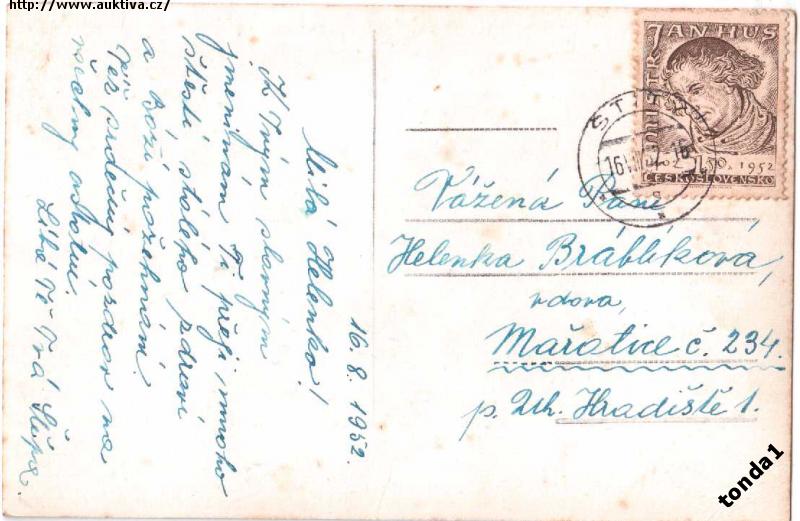 http://www.auktiva.cz/
16. 8. 1952.
Milá Helenko!
K Tvým slavným
jmeninam Ti přeji mnoho
štestí, stáleho zdraví
a Boží požehnání.
Též srdečný pozdrav na
všechny ostatní.
Líbá Tě Tvá
MISTR JAN HUS
1402
1,50
1952
ČESKOSLOVENSKO
16
Vážená Paní
Helenka Bráblíková,
vdova,
Mařatice č. 234.
p. Uh. Hradiště 1.
tonda1